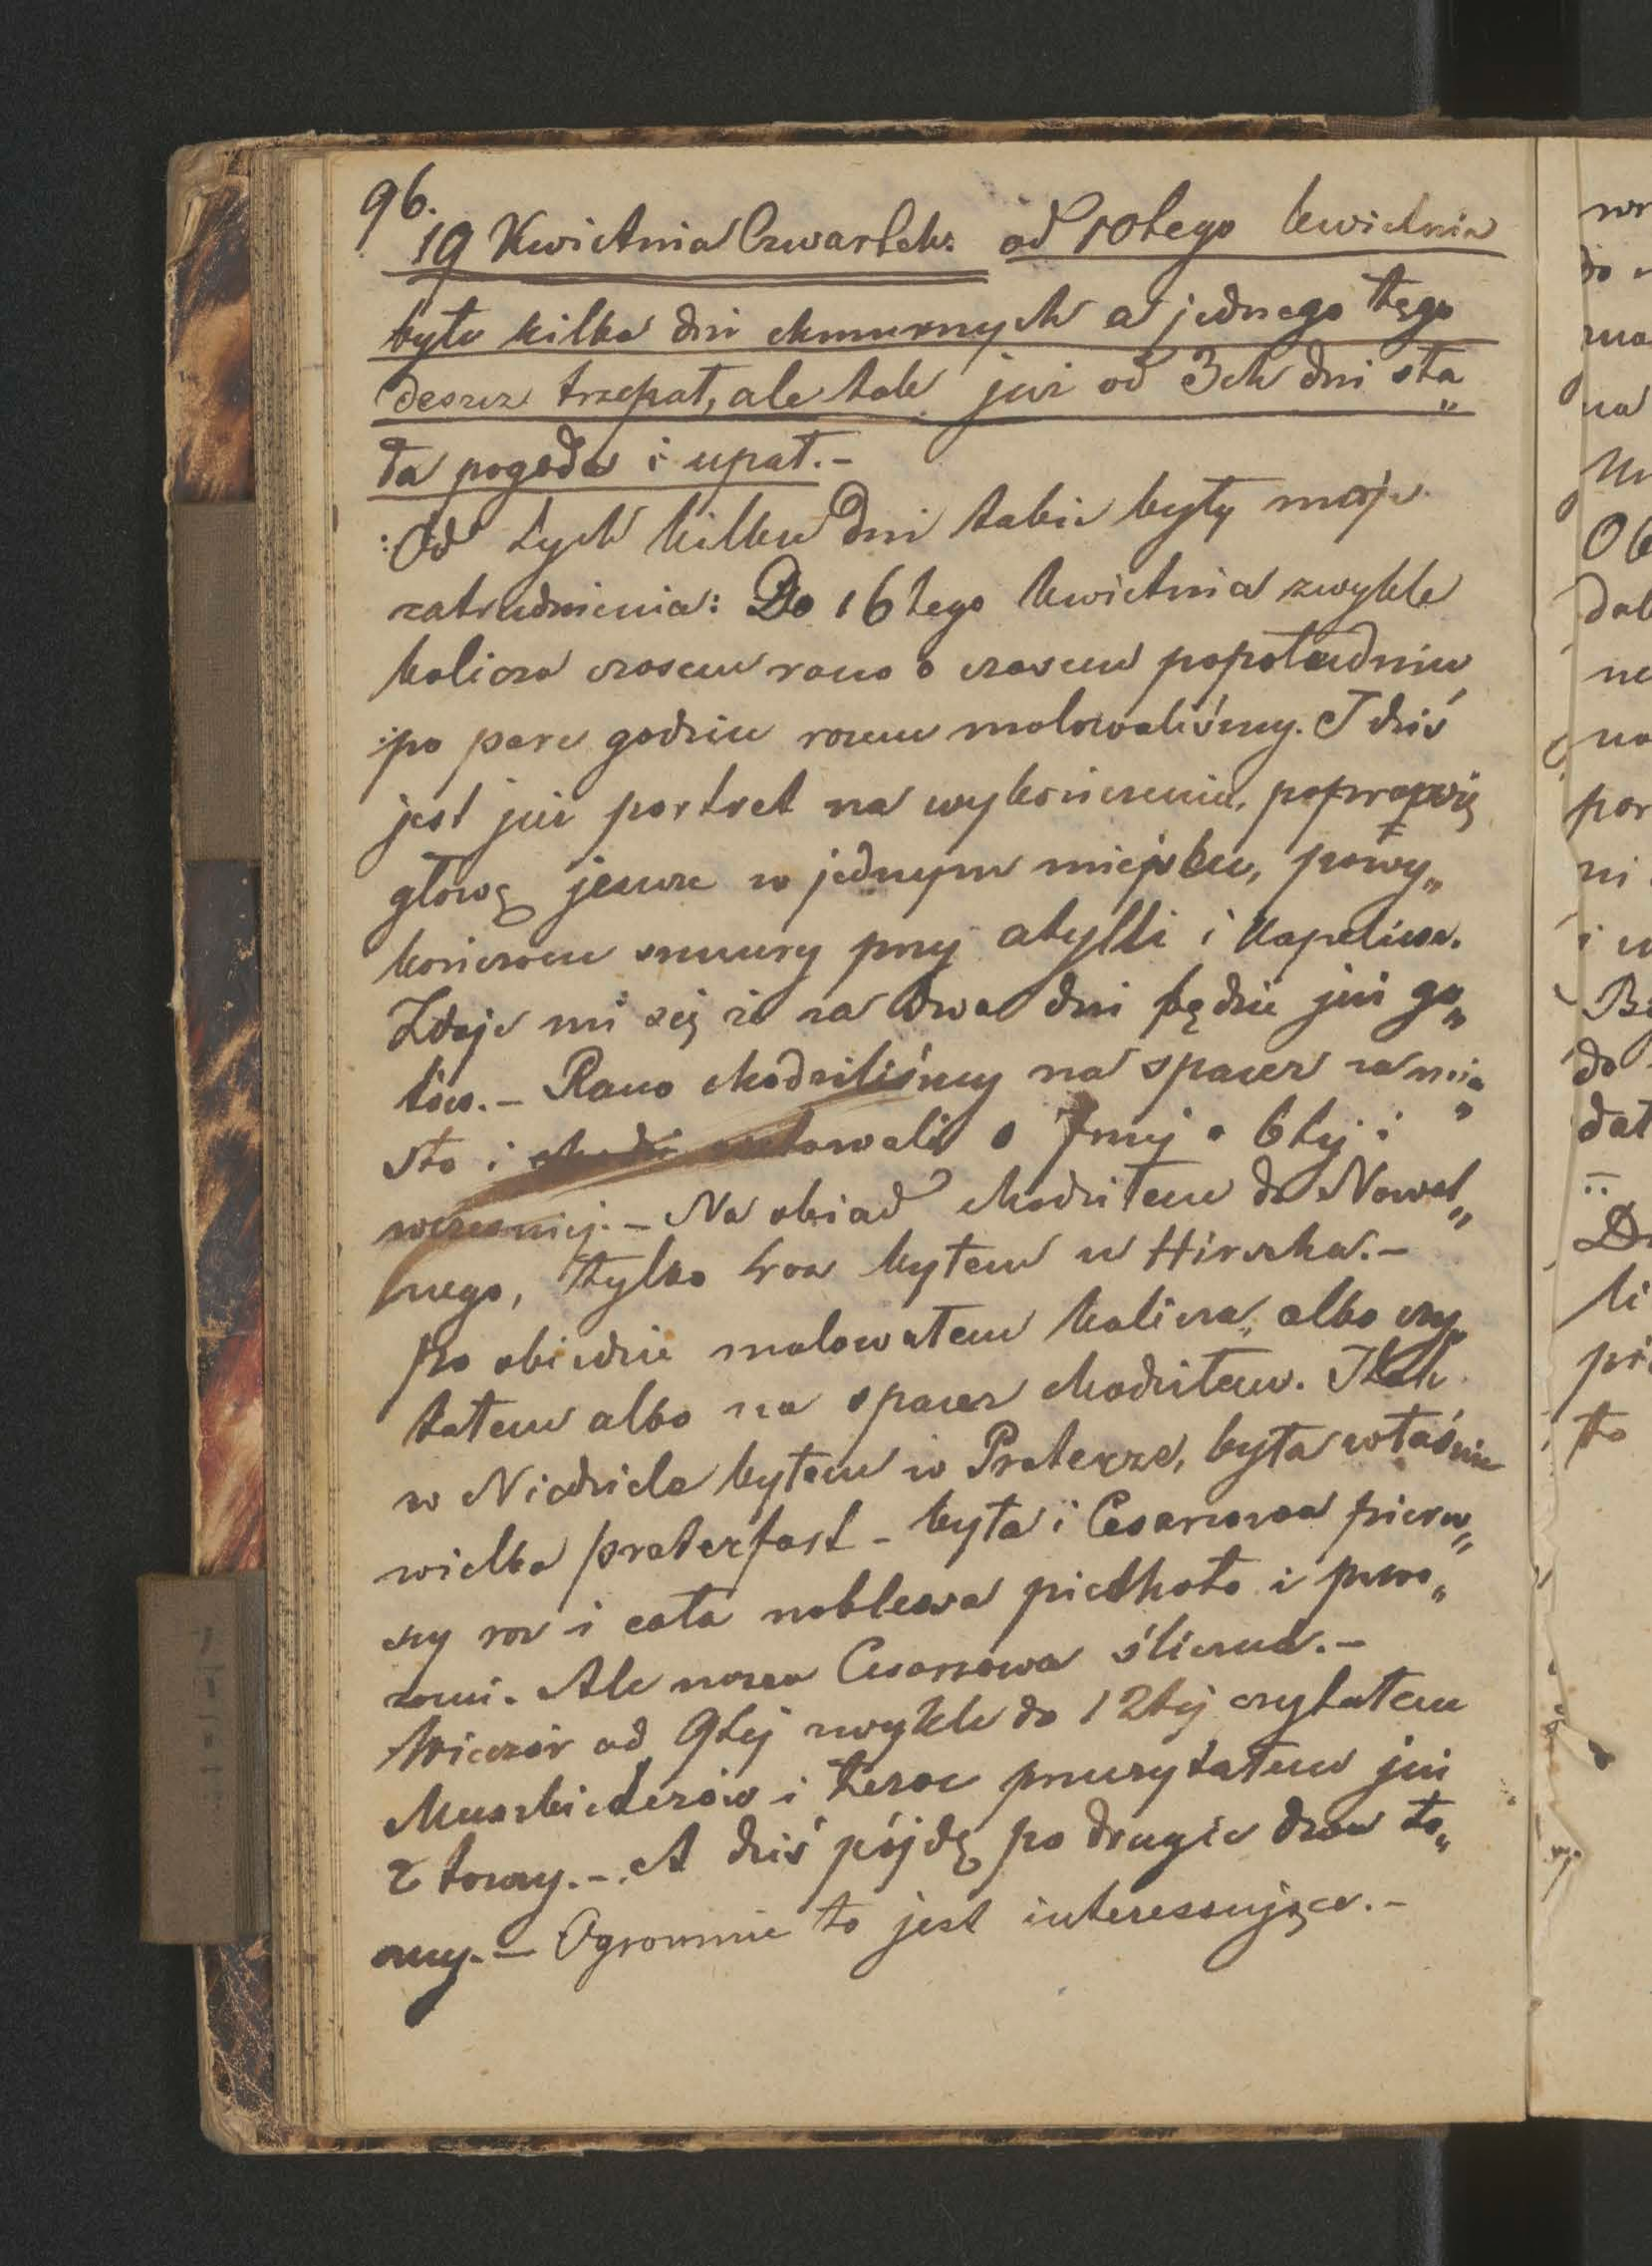 96.
19 Kwietnia Czwartek: od 10tego kwietnia
było kilka dni chmurnych a jednego tęgo
deszcz trzepał, ale tak już od 3ch dni sta„
ła pogoda i upał.-
:Od tych kilku dni takie były moje
zatrudnienia: Do 16tego kwietnia zwykle
kalicza czasem rano a czasem popołudniu
po pare godzin razem malowaliśmy. I dziś
jest już portret na wykończeniu, poprawię
głowę jeszcze w jednym miejscu, powy„
kończam sznury przy atylli i kapelusz.
Zdaje mi się że za dwa dni będzie już go„
tów.- Rano chodziliśmy na spacer za mia„
sto i o 7mej o 6tej i
wcześniej.- Na obiad chodziłem do Nowot„
nego, tylko 4 raz byłem u Hirscha.-
Po obiedzie malowałem kalicza, albo czy„
tałem albo na spacer chodziłem. I tak
w Niedziele byłem w Praterze, była właśnie
wielka praterfart - była i Cesarzowa pierw„
szy raz i cała noblessa piechoto i powo„
zami. Ale nasza Cesarzowa śliczna.-
Wieczór od 9tej zwykle do 12tej czytałem
Muszkieterów i teraz przeczytałem już
2 tomy.- A dziś pójdę po drugie dwa to„
my.- Ogromnie to jest interessujące.-